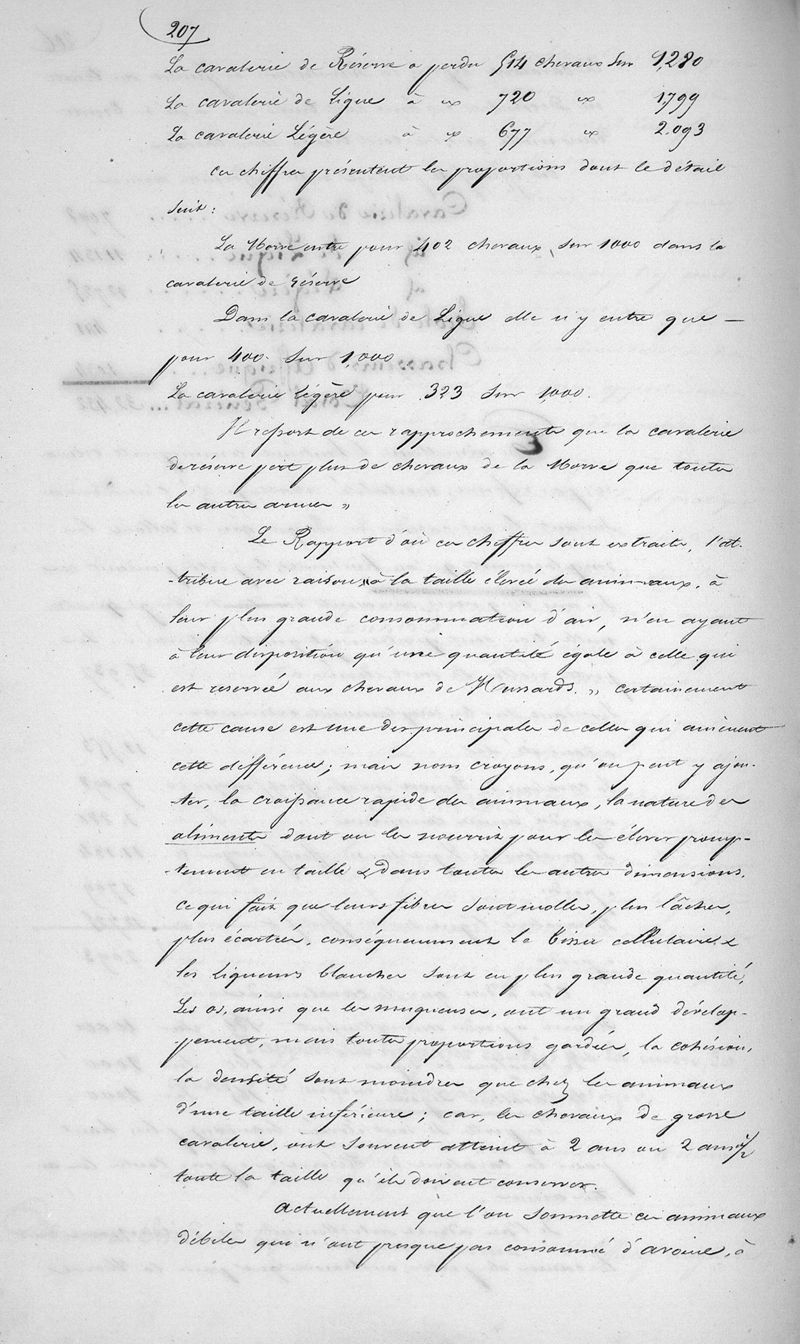 207
La cavalerie de Réserve a perdu 514 chevaux sur 1,280
La cavalerie de Ligne à 720 1,799
La cavalerie Légère à 677 2.093
ces chiffres présentent les proportions dont le détail
suit:
La Morve entre pour 402 chevaux, sur 1000 dans la
cavalerie de réserve
Dans la cavalerie de Ligne elle n'y entre que —
pour 400. sur 1,000
La cavalerie légère pour 323 sur 1000.
Il ressort de ces rapprochements que la cavalerie
de réserve perd plus de chevaux de la Morve que toutes
les autres armes »
Le Rapport d'où ces chiffres sont extraits, l'at-
-tribue avec raison, « à la taille élevée des animaux, à
leur plus grande consommation d'air, n'en ayant
à leur disposition qu'une quantité égale à celle qui
est reservée aux chevaux de Hussards. » certainement
cette cause est une des principales de celles qui amènent
cette différence; mais nous croyons, qu'on peut y ajou-
-ter, la croissance rapide des animaux, la nature des
aliments dont on les nourrit pour les élever promp-
-tement en taille & dans toutes les autres dimensions.
ce qui fait que leurs fibres sont molles, plus lâches,
plus écartées, conséquemment le tissu cellulaire &
les liqueurs blanches sont en plus grande quantité,
Les os, ainsi que les muqueuses, ont un grand dévelop-
-pement, mais toutes proportions gardées, la cohésion,
la densité sont moindres que chez les animaux
d'une taille inférieure; car, les chevaux de grosse
cavalerie, ont souvent atteint à 2 ans ou 2 ans ½
toute la taille qu'ils doivent conserver.
Actuellement que l'on soumette ces animaux
débiles qui n'ont presque pas consommé d'avoine, à